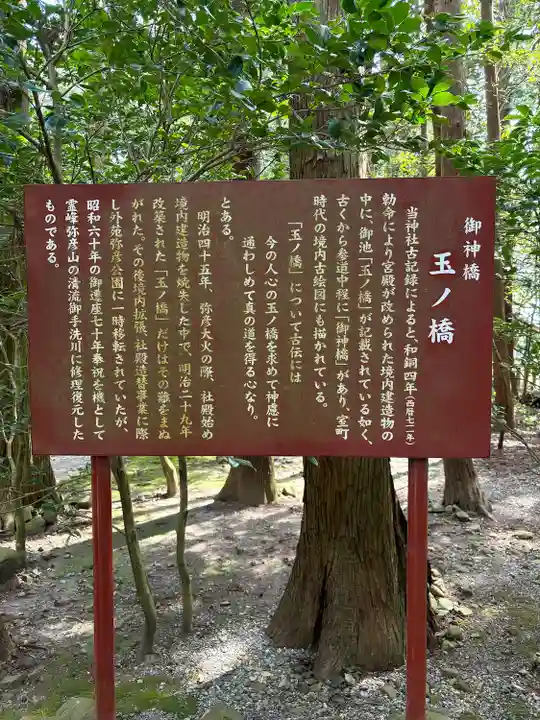 御神橋
玉ノ橋
当神社古記録によると、和銅四年(西暦七一一年)
勅命により宮殿が改められた境内建造物の
中に、御池「玉ノ橋」が記載されている如く、
古くから参道中程に「御神橋」があり、室町
時代の境内古絵図にも描かれている。
「玉ノ橋」について古伝には
今の人心の玉ノ橋を求めて神慮に
通わしめて真の道を得る心なり。
とある。
明治四十五年、弥彦大火の際、社殿始め
境内建造物を焼失した中で、明治二十九年
改築された「玉ノ橋」だけはその難をまぬ
がれた。その後境内拡張、社殿造替事業に際
し外苑弥彦公園に一時移転されていたが、
昭和六十年の御遷座七十年奉祝を機として
霊峰弥彦山の清流御手洗川に修理復元した
ものである。